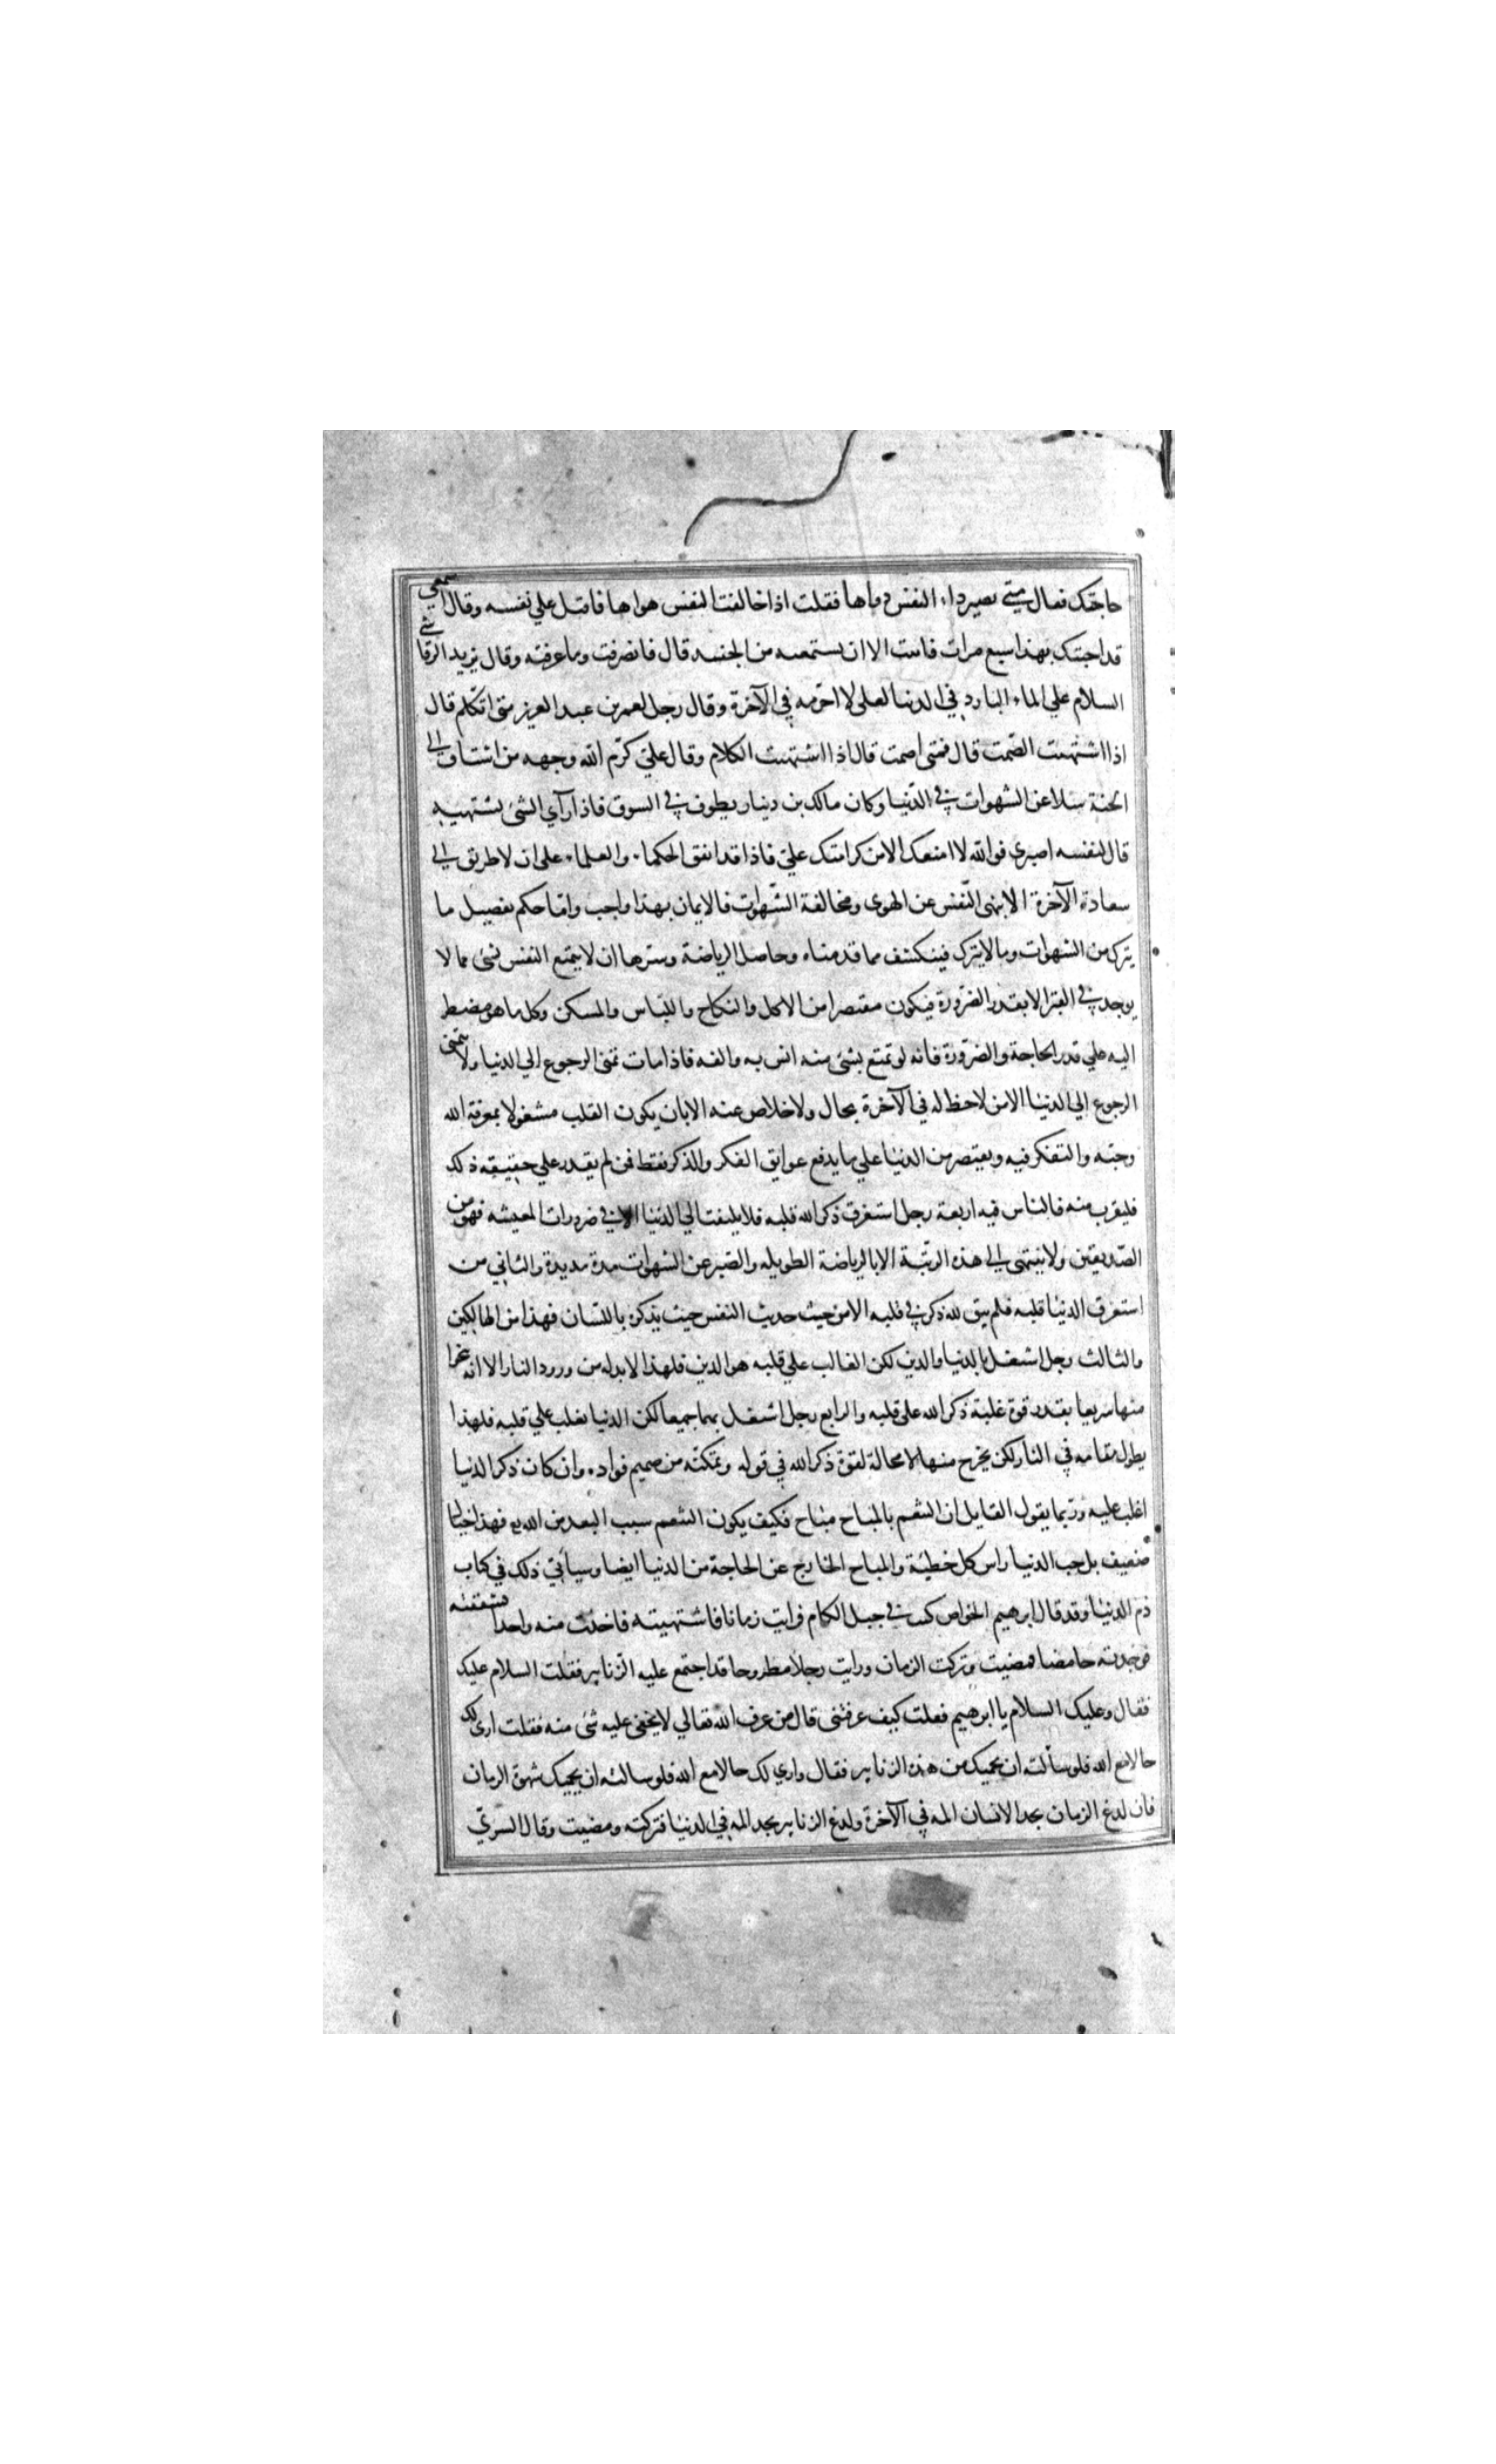 حاجتك فقال متي يصير داء النفس دواها فقلت اذا خالفت النفس هواها فاقبل علي نفسه وقال اسمعي
قد اجبتك بهذا سبع مرات فابيت الا ان تستمعيه من الجنيد قال فانصرفت وما عرفته وقال يزيد الرقاشي
السلام علي الماء البارد في الدنيا لعلي لا احرمه في الآخرة وقال رجل لعمر بن عبد العزيز متى اتكلم قال
اذا اشتهيت الصّمت قال فمتى اصمت قال اذا اشتهيت الكلام وقال عليّ كرّم الله وجهه من اشتاق الي
الجنة سلا عن الشهوات في الدّنيا وكان مالك بن دينار يطوف في السوق فاذا رآي الشئ يشتهيه
قال لنفسه اصبري فوالله لا امنعك الا من كرامتك عليّ فاذا قد اتفق الحكماء والعلماء على ان لا طريق الي
سعادة الآخرة الا بنهى النّفس عن الهوى ومخالفة الشّهوات فالايمان بهذا واجب وامّا حكم تفصيل ما
يترك من الشهوات وما لا يترك فينكشف مما قدمناه وحاصل الرياضة وسترها ان لا يتمتع النفس بشئ مما لا
يوجد في القبر الا بقدر الضّرورة فيكون مقتصرا من الاكل والنكاح واللباس والمسكن وكل ما هو مضطر
اليه علي قدر الحاجة والضّرورة فانه لو تمتع بشئ منه انس به والفه فاذا مات تمنى الرجوع الي الدنيا ولا يتمنى
الرجوع الي الدنيا الا من لا حظ له في الآخرة بحال ولا خلاص عنه الا بان يكون القلب مشغولا بمعرفة الله
وحبّه والتفكر فيه ويقتصر من الدنيا علي ما يدفع عوايق الفكر والذكر فقط فمن لم يقدر علي حقيقة ذلك
فليقرب منه فالناس فيه اربعة رجل استغرق ذكر الله قلبه فلا يلتفت الي الدنيا الا في ضرورات المعيشه فهو من
الصّديقين ولا ينتهى الي هذه الرتّبة الا بالرياضة الطويله والصّبر عن الشهوات مدة مديدة والثاني من
استغرق الدنيا قلبه فلم يبق لله ذكر في قلبه الا من حيث حديث النفس حيث يذكره باللسان فهذا من الهالكين
والثالث رجل اشتغل بالدنيا والدين لكن الغالب علي قلبه هو الدين فلهذا لا بد له من ورود النار الا انه
منها سريعا بقدر قوة غلبة ذكر الله على قلبه والرابع رجل اشتغل بهما جميعا لكن الدنيا تغلب علي قلبه فلهذا
يطول مقامه في النار لكن يخرج منها لا محالة لقوة ذكر الله في قوله وتمكنه من صميم فواده وان كان ذكر الدنيا
اغلب عليه وربّما يقول القايل ان التنعم بالمباح مباح فكيف يكون التنعم سبب البعد من الله فهذا
ضعيف بل حب الدنيا راس كل خطيئة والمباح الخارج عن الحاجة من الدنيا ايضا وسيأتي ذلك في كتاب
ذم الدنيا وقد قال ابرهيم الخواص كنت في جبل الكام فرايت رمانا فاشتهيته فاخذت منه واحدا فشققته
فوجدته حامضا فمضيت وتركت الرمان ورايت رجلا مطروحا قد اجتمع عليه الزنابير فقلت السلام عليك
فقال وعليك السلام يا ابرهيم فقلت كيف عرفتنى قال من عرف الله تعالي لا يخفى عليه شئ منه فقلت ارى لك
حالا مع الله فلو سألته ان يحميك من هذه الزنابير فقال واري لك حالا مع الله فلو سالته ان يحميك شهوة الرمان
فان لدغ الرمان يجد الانسان المه في الآخرة ولدغ الزنابير يجد المه في الدنيا فتركته ومضيت وقال السّريّ